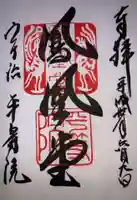 奉拝
平成廿
鳳凰堂
宇治
平等院